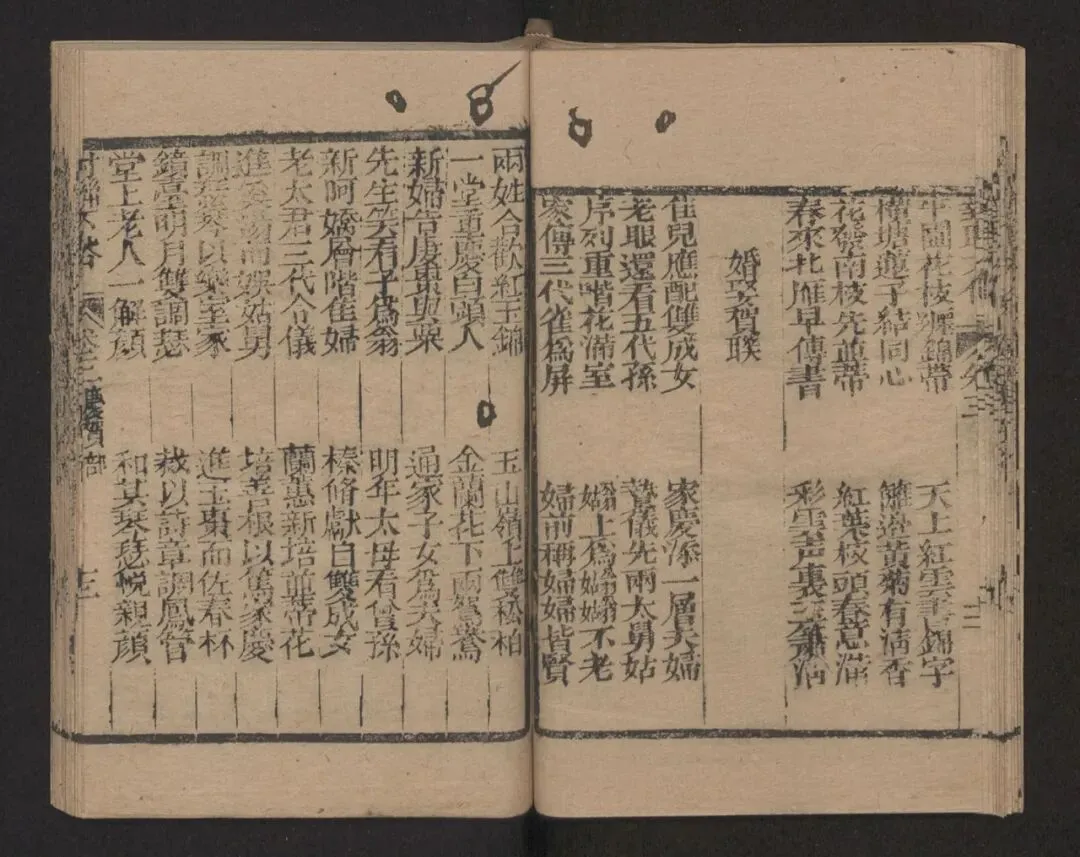 平園花枝辦錦帶
天上紅雲書錦字
橫塘蓮子結同心
籬邊黃菊有淸香
花發南枝先並蒂
紅葉枝頭春意滿
春來北雁早傳書
彩雲聲裏玉簫淸
婚娶賀聯
佳兒應配雙成女
家慶添一層夫婦
老眼還看五代孫
萱儀先兩大舅姑
序列重階花滿室
翁上爲翁翁不老
家傳三代雀爲屏
婦前稱婦婦皆賢
兩姓合歡紅玉錦
玉山嶺上雙松柏
一堂重慶白頭人
金蘭花下兩鴛鴦
新婦告虔棗與栗
通家子女爲夫婦
先生笑看子爲翁
明年太母看曾孫
新阿嬌層階隹婦
榛脩獻自雙成女
老太君三代令儀
蘭蕙新培並蒂花
進羹湯而娛姑舅
培善根以篤家慶
調琴瑟以樂室家
進玉棗而佐春杯
鏡臺明月雙調瑟
裁以詩章調鳳管
堂上老人一解顏
和其琴瑟悅親顏
卷三
慶賀部